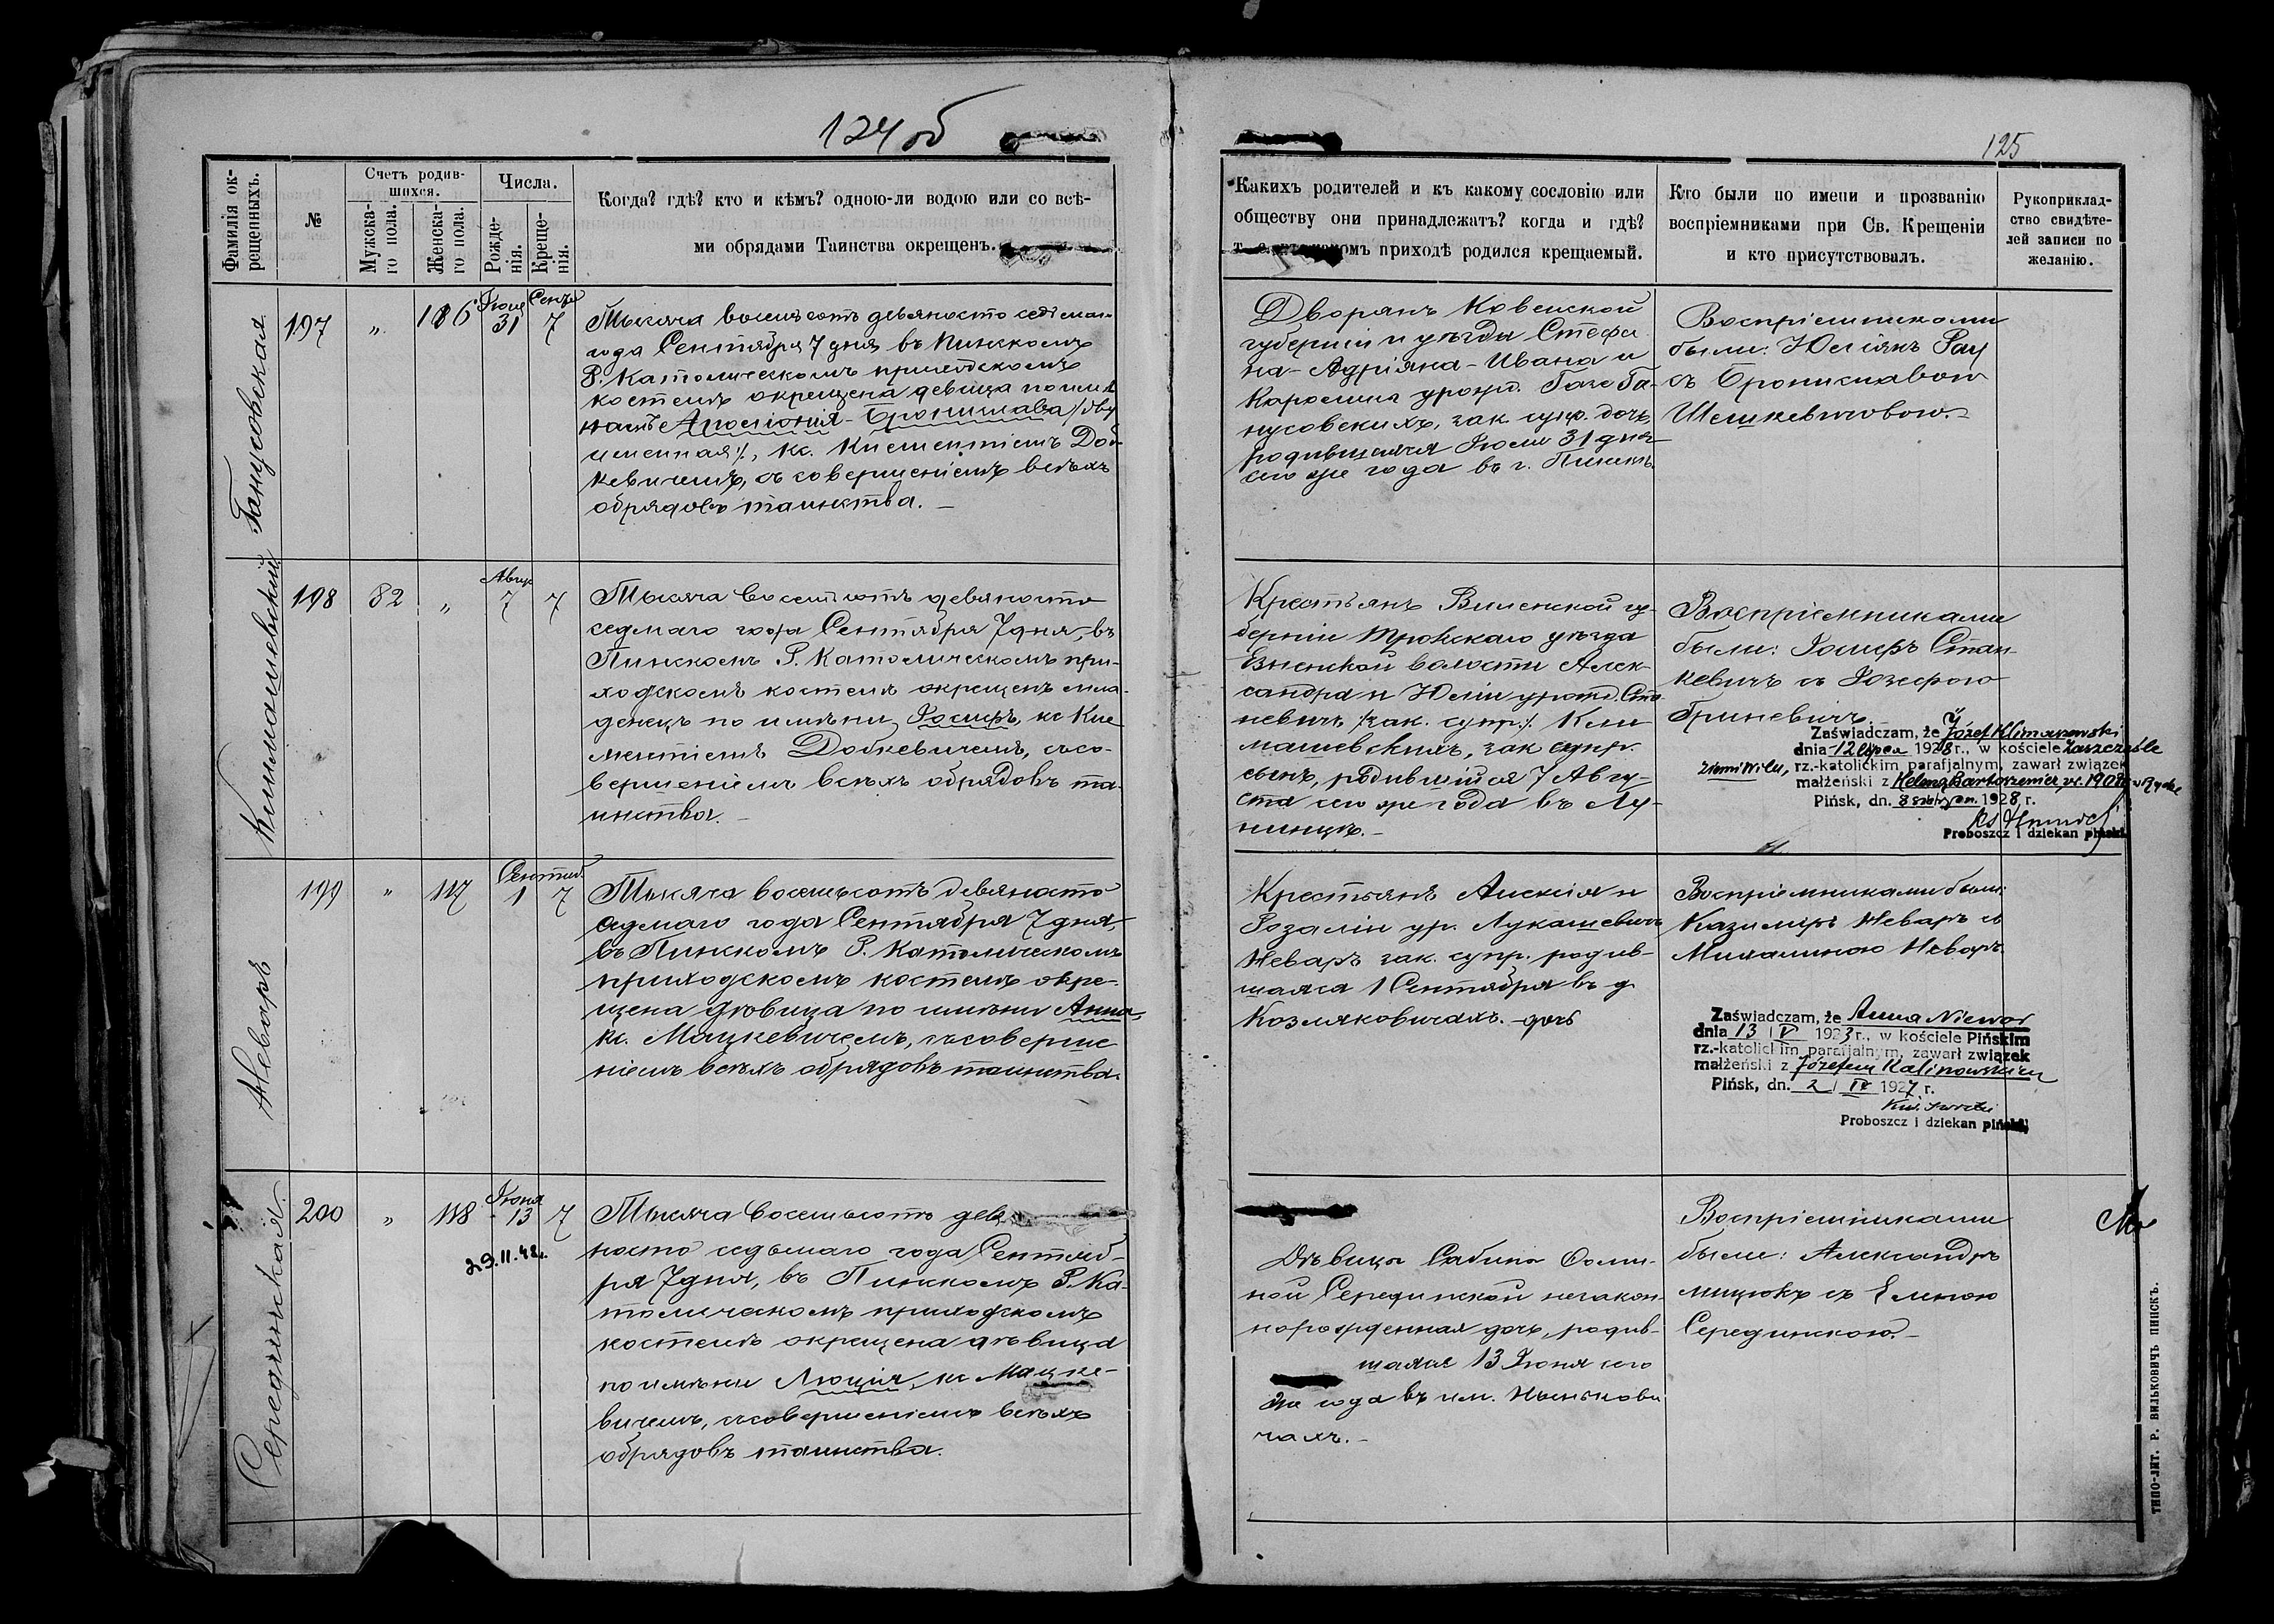 124 об
125
Фамилія ок-
рещенныхъ.
№
Счетъ родив-
шихся.
Мужска-
го пола.
Женска-
го пола.
Числа.
Рожде-
нія.
Креще-
нія.
Когда? гдѣ? кто и кѣмъ? одною-ли водою или со всѣ-
ми обрядами Таинства окрещенъ.
Какихъ родителей и къ какому сословію или
обществу они принадлежатъ? когда и гдѣ?
приходѣ родился крещаемый.
Кто были по имени и прозванію
воспріемниками при Св. Крещеніи
и кто присутствовалъ.
Рукоприклад-
ство свидѣте-
лей записи по
желанію.
Ганусовская
197
"
116
Іюля
31
7
Тысяча восемьсотъ девяносто седьмаго
года Сентября 7 дня въ Пинскомъ
Р. Католическомъ приходскомъ
костелѣ окрещена девица по име
намъ Аполонія-Бронислава /:дву
именная:/, кс. Клементіемъ Доб-
кевичемъ, съ совершеніемъ всѣхъ
обрядовъ таинства.
Дворянъ Ковенской
губерніи и уѣзда Стефа
на-Адріяна-Ивана и
Каролины урожд.
Га-
нусовскихъ, зак. супр. дочь,
родившаяся Іюля 31 дня
сего же года въ г. Пинскѣ
Воспріемниками
были: Юліянъ
съ Брониславою
Шешкевичовою.
Климашевскій
198
82
"
Авгус
7
7
Тысяча восемьсотъ девяносто
седмаго года Сентября 7 дня, въ
Пинскомъ Р. Католическомъ при-
ходскомъ костелѣ окрещенъ мла-
денецъ по имени Іосифъ, кс Кле
ментіемъ Добкевичемъ, съ со-
вершеніемъ всѣхъ обрядовъ та-
инства.
Крестьянъ Виленской гу-
берніи Трокскаго уѣзда
Езненской волости Алек-
сандра и Юліи урожд. Ста
невичъ /:зак. супр.:/ Кли
машевскихъ, зак супр.
сынъ, родившійся 7 Авгу-
ста сего же года въ Лу-
нинцѣ.
Воспріемниками
были: Іосифъ Стан-
кевичъ съ Іозефою
Гриневичъ
Zaświadczam, że Józef Klimaszewski
dnia 12 lipca 1928 r., w kościele
rz.-katolickim parafjalnym, zawarł związek
małżeński z Heleną
Pińsk, dn. 8 1928 r.
Proboszcz i dziekan piński
Неваръ
199
"
117
Сентяб.
1
7
Тысяча восемьсотъ девяносто
седмаго года Сентября 7 дня,
въ Пинскомъ Р. Католическомъ
приходскомъ костелѣ окре-
щена дѣвица по имени Анна,
кс. Мацкевичемъ, съ соверше
ніемъ всѣхъ обрядовъ таинства.
Крестьянъ Алексія и
Розаліи ур. Лукашевичъ
Неваръ зак. супр. родив-
шаяся 1 Сентября въ д
Козляковичахъ. дочь
Воспріемниками были:
Казимиръ Неваръ съ
Михалиною Неваръ.
Zaświadczam, że Anna Niewar
dnia 13 / V 1923 r., w kościele Pińskim
rz.-katolickim parafjalnym, zawarł związek
małżeński z Józefem Kalinowskim
Pińsk, dn. 2 / IV 1927 r.
Proboszcz i dziekan piński
Серединская.
200
"
118
Іюня
13
7
29.11.42.
Тысяча восемьсотъ девя
носто седьмаго года Сентяб-
ря 7 дня, въ Пинскомъ Р. Ка-
толическомъ приходскомъ
костелѣ окрещена дѣвица
по имени Люція, кс Мацке-
вичемъ, съ совершеніемъ всѣхъ
обрядовъ таинства.
Дѣвицы Сабины Фоми-
ной Серединской незакон-
норожденная дочь, родив-
шаяся 13 Іюня сего
же года въ им. Ньньькови
чахъ.
Воспріемниками
были: Александръ
Мицюкъ съ Еленою
Серединскою.
ТИПО-ЛИТ. Р. ВИЛЬКОВИЧЪ ПИНСКЪ.